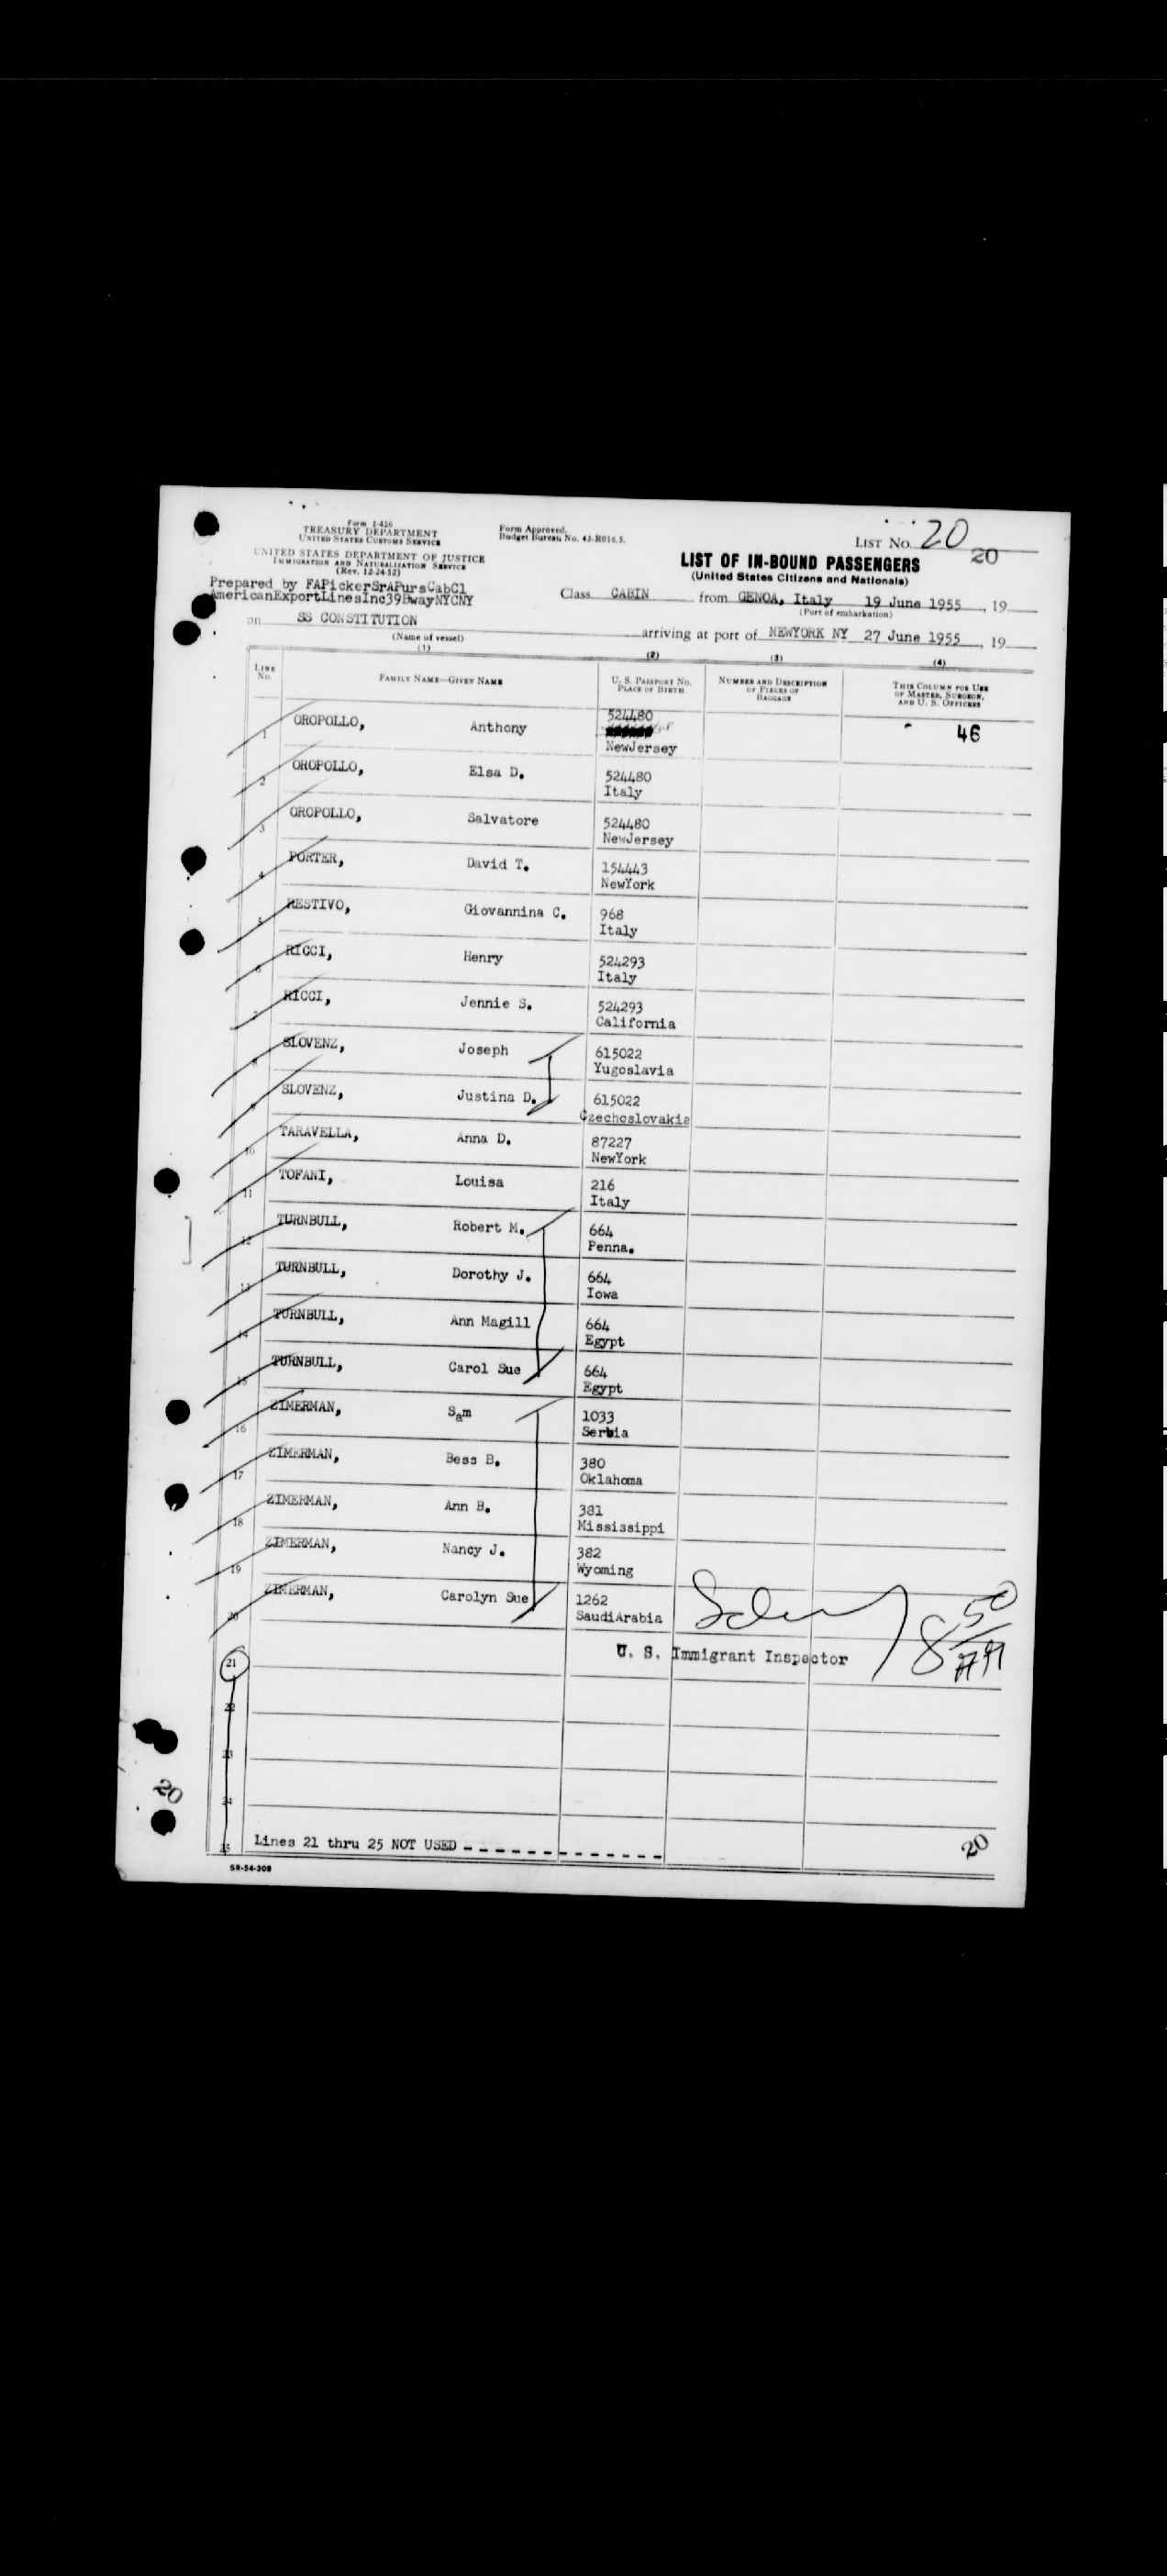 Form I-416
TREASURY DEPARTMENT
UNITED STATES CUSTOMS SERVICE
UNITED STATES DEPARTMENT OF JUSTICE
IMMIGRATION AND NATURALIZATION SERVICE
(Rev. 12-24-52)
Form Approved.
Budget Bureau No. 43-R016.5.
LIST NO. 20
20
LIST OF IN-BOUND PASSENGERS
(United States Citizens and Nationals)
Prepared by FAPickerSrAPursCabCl
AmericanExportLinesInc39BwayNYCNY
Class CABIN from GENOA, Italy 19 June 1955, 19
(Port of embarkation)
on SS CONSTITUTION arriving at port of NEWYORK NY 27 June 1955, 19
(Name of vessel)
(1) (2) (3) (4)
LINE NO. FAMILY NAME—GIVEN NAME U. S. PASSPORT NO. PLACE OF BIRTH NUMBER AND DESCRIPTION OF PIECES OF BAGGAGE THIS COLUMN FOR USE OF MASTER, SURGEON, AND U. S. OFFICERS
1 OROPOLLO, Anthony 524480 - 46
NewJersey
2 OROPOLLO, Elsa D. 524480
Italy
3 OROPOLLO, Salvatore 524480
NewJersey
4 PORTER, David T. 154443
NewYork
5 RESTIVO, Giovannina C. 968
Italy
6 RICCI, Henry 524293
Italy
7 RICCI, Jennie S. 524293
California
8 SLOVENZ, Joseph 615022
Yugoslavia
9 SLOVENZ, Justina D. 615022
Czechoslovakia
10 TARAVELLA, Anna D. 87227
NewYork
11 TOFANI, Louisa 216
Italy
12 TURNBULL, Robert M. 664
Penna.
13 TURNBULL, Dorothy J. 664
Iowa
14 TURNBULL, Ann Magill 664
Egypt
15 TURNBULL, Carol Sue 664
Egypt
16 ZIMERMAN, Sam 1033
Serbia
17 ZIMERMAN, Bess B. 380
Oklahoma
18 ZIMERMAN, Ann B. 381
Mississippi
19 ZIMERMAN, Nancy J. 382
Wyoming
20 ZIMERMAN, Carolyn Sue 1262
SaudiArabia
U. S. Immigrant Inspector
8 50
21
22
23
24
25 Lines 21 thru 25 NOT USED - - - - - - - - - - - - -
20
20
SR-54-308